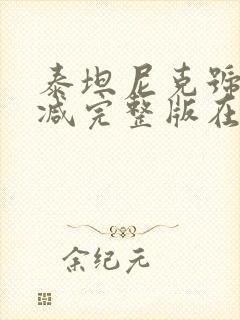 泰坦尼克號
减完整版在
余纪元